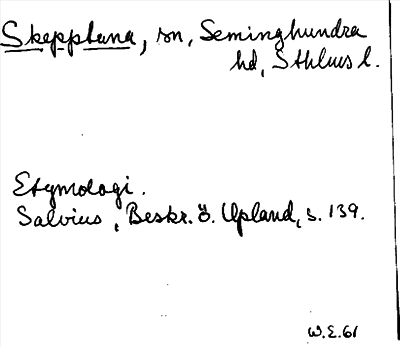 Skepptuna, sn, Seminghundra
hd, Sthlms l.
Etymologi.
Salvius, Beskr. ö. Upland, s. 139.
W.E. 61